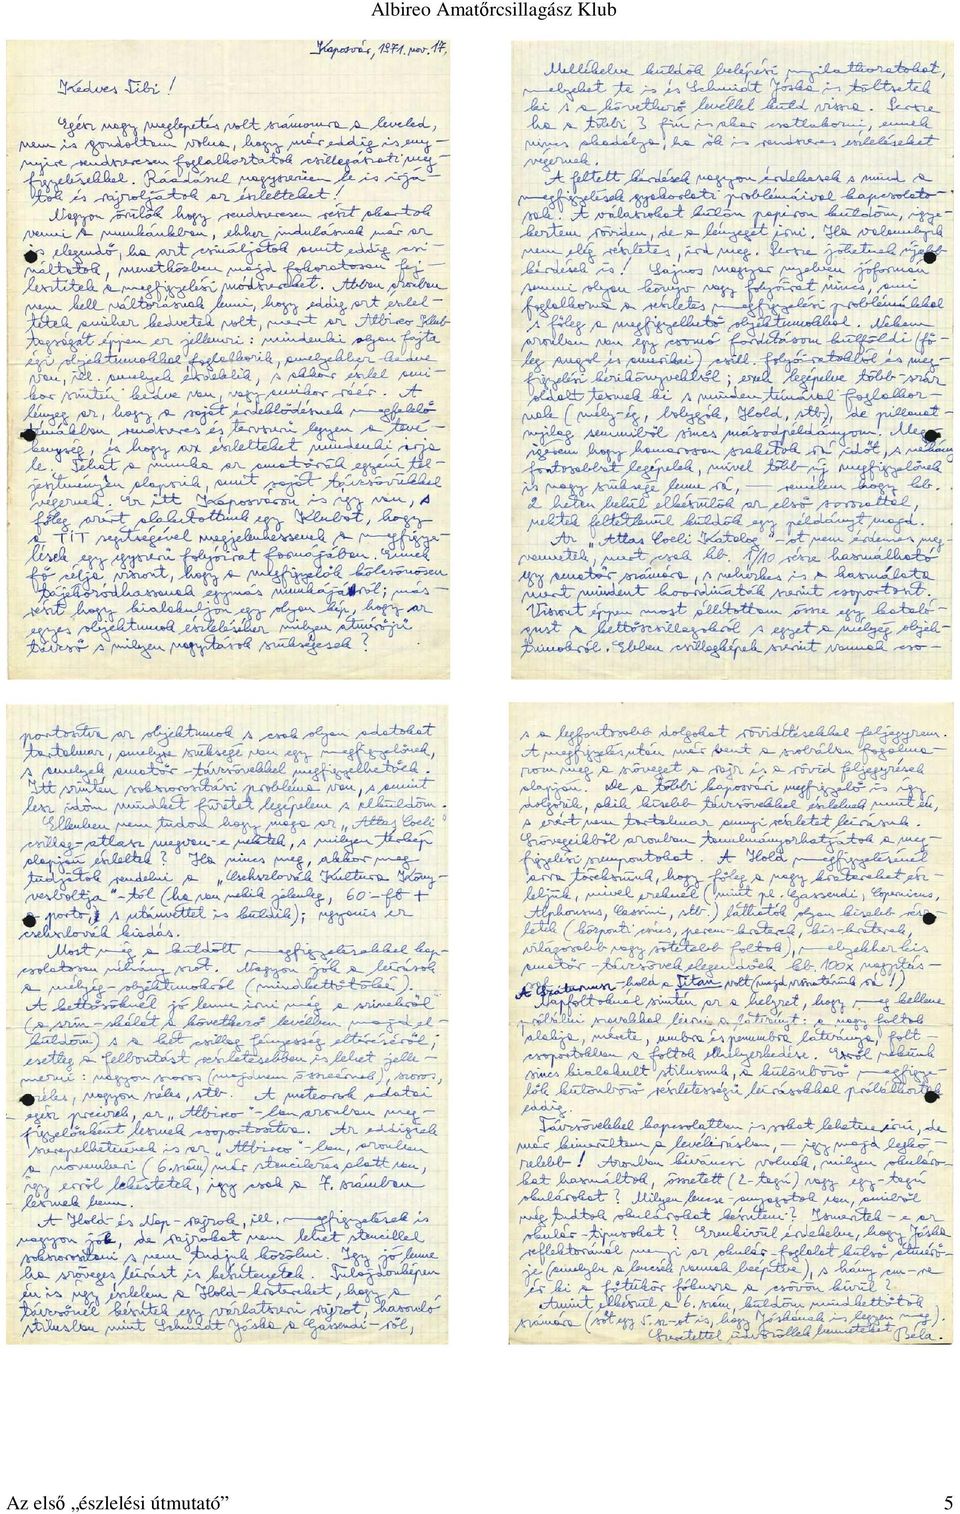 Albireo Amatőrcsillagász Klub
Kaposvár, 1971. nov. 17.
Kedves Tibi!
Egész nagy meglepetés volt számomra a leveled,
nem is gondoltam volna, hogy már eddig is eny-
nyire rendszeresen foglalkoztatok csillagászati meg-
figyelésekkel. Ráadásul nagyszerűen le is írjá-
tok és rajzoljátok az észlelteket!
Nagyon örülök hogy rendszeresen részt akartok
venni a munkánkban, ehhez indulásnak már az
is elegendő, ha azt csináljátok amit eddig csi-
náltatok, menetközben majd fokozatosan fej-
lesztitek a megfigyelési módszereket. Abban azonban
nem kell változásnak lenni, hogy eddig azt észlel-
tétek amihez kedvetek volt, mert az Albireo Klub
tagságát éppen ez jellemzi: mindenki olyan fajta
égi objektumokkal foglalkozik, amelyekhez kedve
van, ill. amelyek érdeklik, s akkor észlel ami-
kor szintén kedve van, vagy amikor ráér. A
lényeg az, hogy a saját érdeklődésnek megfelelő
témákban rendszeres és tervszerű legyen a tevé-
kenység, és hogy az észlelteket mindenki írja
le. Tehát a munka az amatőrök egyéni tel-
jesítményén alapszik, amit saját távcsövükkel
végeznek. Ez itt Kaposváron is így van, s
főleg azért alakítottunk egy Klubot, hogy
a TIT segítségével megjelenhessenek a megfigye-
lések egy egyszerű folyóirat formájában. Ennek
fő célja viszont, hogy a megfigyelők kölcsönösen
tájékozódhassanak egymás munkájáról; más-
részt hogy kialakuljon egy olyan kép, hogy az
egyes objektumok észleléséhez milyen átmérőjű
távcső s milyen nagyítások szükségesek?
Mellékelve küldök belépési nyilatkozatokat,
melyeket te is és Schmidt Jóska is töltsetek
ki s a következő levéllel küldd vissza. Persze
ha a többi 3 fiú is akar csatlakozni, ennek
nincs akadálya, ha ők is rendszeres észleléseket
végeznek.
A feltett kérdések nagyon érdekesek s mind a
megfigyelések gyakorlati problémáival kapcsolato-
sak! A válaszokat külön papíron küldöm, igye-
keztem röviden, de a lényeget írni. Ha valamelyik
nem elég részletes, írd meg. Persze jöhetnek újabb
kérdések is! Sajnos magyar nyelven jóformán
semmi olyan könyv vagy folyóirat nincs, ami
foglalkozna a részletes megfigyelési problémákkal
s főleg a megfigyelhető objektumokkal. Nekem
azonban van egy csomó fordításom külföldi (fő-
leg angol és amerikai) csill. folyóiratokból és meg-
figyelési kézikönyvekből; ezek legépelve több-száz
oldalt tesznek ki s minden témával foglalkoz-
nak (mély-ég, bolygók, Hold, stb), de pillanat-
nyilag semmiből sincs másodpéldányom. Meg-
ígérem hogy hamarosan szakítok rá időt, s néhány
fontosabbat legépelek, mivel több új megfigyelőnek
is nagy szüksége lenne rá, — remélem hogy kb.
2 héten belül elkészülök az első sorozattal,
nektek feltétlenül küldök egy példányt majd.
Az „Atlas Coeli Katalog"-ot nem érdemes meg-
vennetek, mert csak kb. 1/10 része használható
egy amatőr számára, s nehézkes is a használata
mert mindent koordináták szerint csoportosít.
Viszont éppen most állítottam össze egy kataló-
gust a kettőscsillagokról s egyet a mélyég objek-
tumokról. Ebben csillagképek szerint vannak cso-
portosítva az objektumok s csak olyan adatokat
tartalmaz, amelyre szüksége van egy megfigyelőnek,
s amelyek amatőr-távcsövekkel megfigyelhetőek.
Itt szintén sokszorosítási probléma van, s amint
lesz időm mindkét füzetet legépelem s elküldöm.
Ellenben nem tudom hogy maga az „Atlas Coeli"
csillag-atlasz megvan-e nektek, s milyen térkép
alapján észleltek? Ha nincs meg, akkor meg
tudjátok rendelni a „Csehszlovák Kultura Köny-
vesboltja"-tól (ha van nekik jelenleg, 60-ft +
a porto, s utánvéttel is küldik); ugyanis ez
csehszlovák kiadás.
Most még a küldött megfigyelésekkel kap-
csolatosan néhány szót. Nagyon jók a leírások
a mélyég-objektumokról (mindkettőtöké).
A kettősöknél jó lenne írni még a színekről
(a szín-skálát a következő levélben majd el-
küldöm) s a két csillag fényesség eltéréséről;
esetleg a felbontást részletesebben is lehet jelle-
mezni: nagyon szoros (majdnem összeérnek), szoros,
széles, nagyon széles, stb. A meteorok adatai
egész precízek, az „Albireo"-ban azonban meg-
figyelőnként lesznek csoportosítva. Az eddigiek
szerepelhetnének is az „Albireo"-ban, azonban
a novemberi (6. szám) már stencilezés alatt van,
így erről lekéstetek, így csak a 7. számban
lesznek benn.
A Hold- és Nap-rajzok, ill. megfigyelések is
nagyon jók, de rajzokat nem lehet stencillel
sokszorosítani s nem tudjuk közölni. Így jó lenne
ha szöveges leírást is készítenétek. Tulajdonképen
én is úgy észlelem a Hold-krátereket, hogy a
távcsőnél készítek egy vázlatszerű rajzot, hasonló
stílusban mint Schmidt Jóska a Gassendi-ről,
s a legfontosabb dolgokat rövidítésekkel feljegyzem.
A megfigyelés után már bent a szobában fogalma-
zom meg a szöveget a rajz és a rövid feljegyzések
alapján. De a többi kaposvári megfigyelő is így
dolgozik, akik kisebb távcsövekkel észlelnek mint én,
s ezért nem tartalmaz annyi részletet leírásuk.
Szövegeikből azonban tanulmányozhatjátok a meg-
figyelési szempontokat. A Hold megfigyelésénél
arra törekszünk, hogy főleg a nagy krátereket ész-
leljük, mivel ezeknél (mint pl. Gassendi, Copernicus,
Alphonsus, Cassini, stb.) láthatók olyan kisebb rész-
letek (központi csúcs, perem-kráterek, kis-kráterek,
világosabb vagy sötétebb foltok), melyekhez kis
amatőr-távcsövek elegendőek kb. 100x nagyítás-
A Szaturnusz-hold a Titan volt (majd visszatérünk rá!)
Napfoltoknál szintén az a helyzet, hogy meg kellene
próbálni szavakkal leírni a látványt: a nagy foltok
alakja, mérete, umbra és penumbra látványa, folt-
csoportokban a foltok elhelyezkedése. Erről nekünk
sincs kialakult stílusunk, a különböző megfigye-
lők különböző részletességű leírásokkal próbálkoztak
eddig.
Távcsövekkel kapcsolatban is sokat lehetne írni, de
már kimerültem a levélírásban, — így majd legkö-
zelebb! Azonban kíváncsi volnék, milyen okuláro-
kat használtok, összetett (2-tagú) vagy egy-tagú
okulárokat? Milyen lencse-anyagotok van, amiből
még tudtok okulárokat készíteni? Ismertek-e az
okulár-típusokat? Ezenkívül érdekelne, hogy Jóska
reflektoránál mennyi az okulár-foglalat külső átmérő-
je (amelybe a lencsék vannak beépítve), s hány cm-re
ér ki a főtükör fókusza a csövön kívül?
Amint elkészül a 6. szám, küldöm mindkettőtök
számára (sőt egy 5. sz-ot is, hogy Jóskának is legyen meg).
Szeretettel üdvözöllek benneteket Béla.
Az első „észlelési útmutató” 5